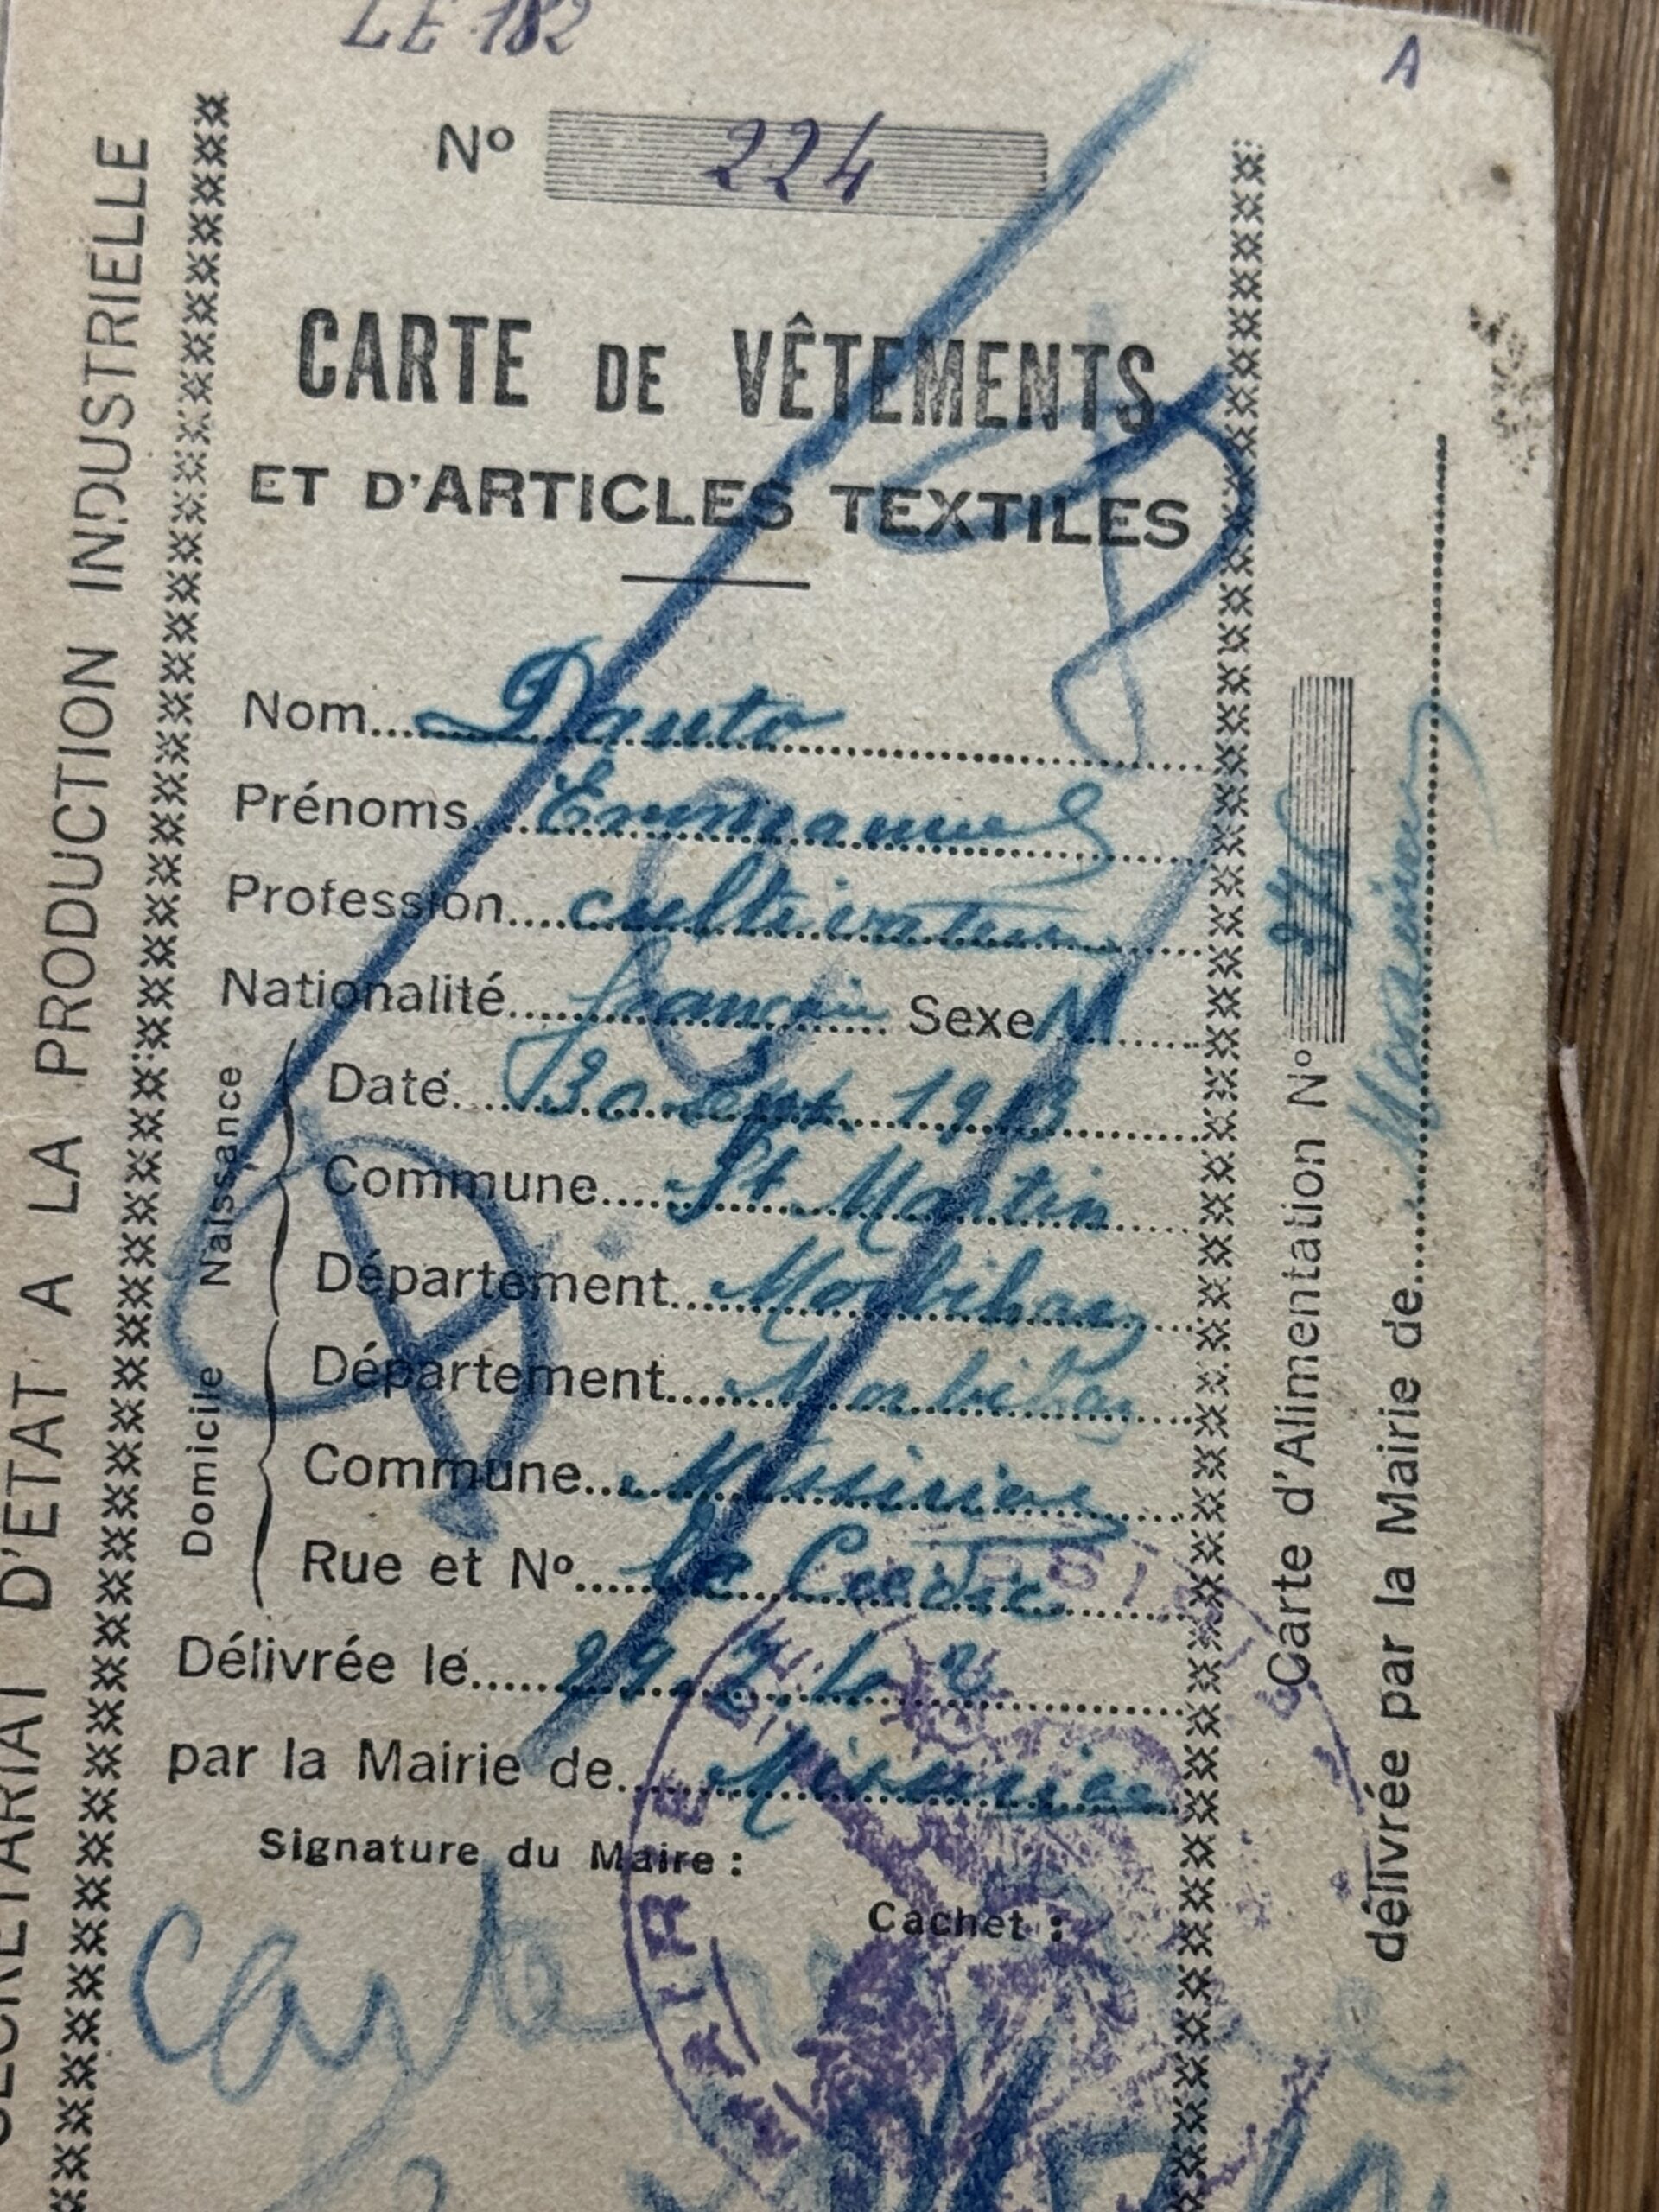 LE 182
A
Nº 224
CARTE DE VÊTEMENTS
ET D'ARTICLES TEXTILES
Nom Danto
Prénoms Emmanuel
Profession cultivateur
Nationalité français Sexe M
Naissance
Date 30 sept 1913
Commune St Martin
Département Morbihan
Domicile
Département Morbihan
Commune Missiriac
Rue et Nº
Délivrée le 29.7.42
par la Mairie de Missiriac
Signature du Maire :
Cachet :
MAIRIE
SECRETARIAT D'ETAT A LA PRODUCTION INDUSTRIELLE
Carte d'Alimentation Nº
délivrée par la Mairie de Missiriac